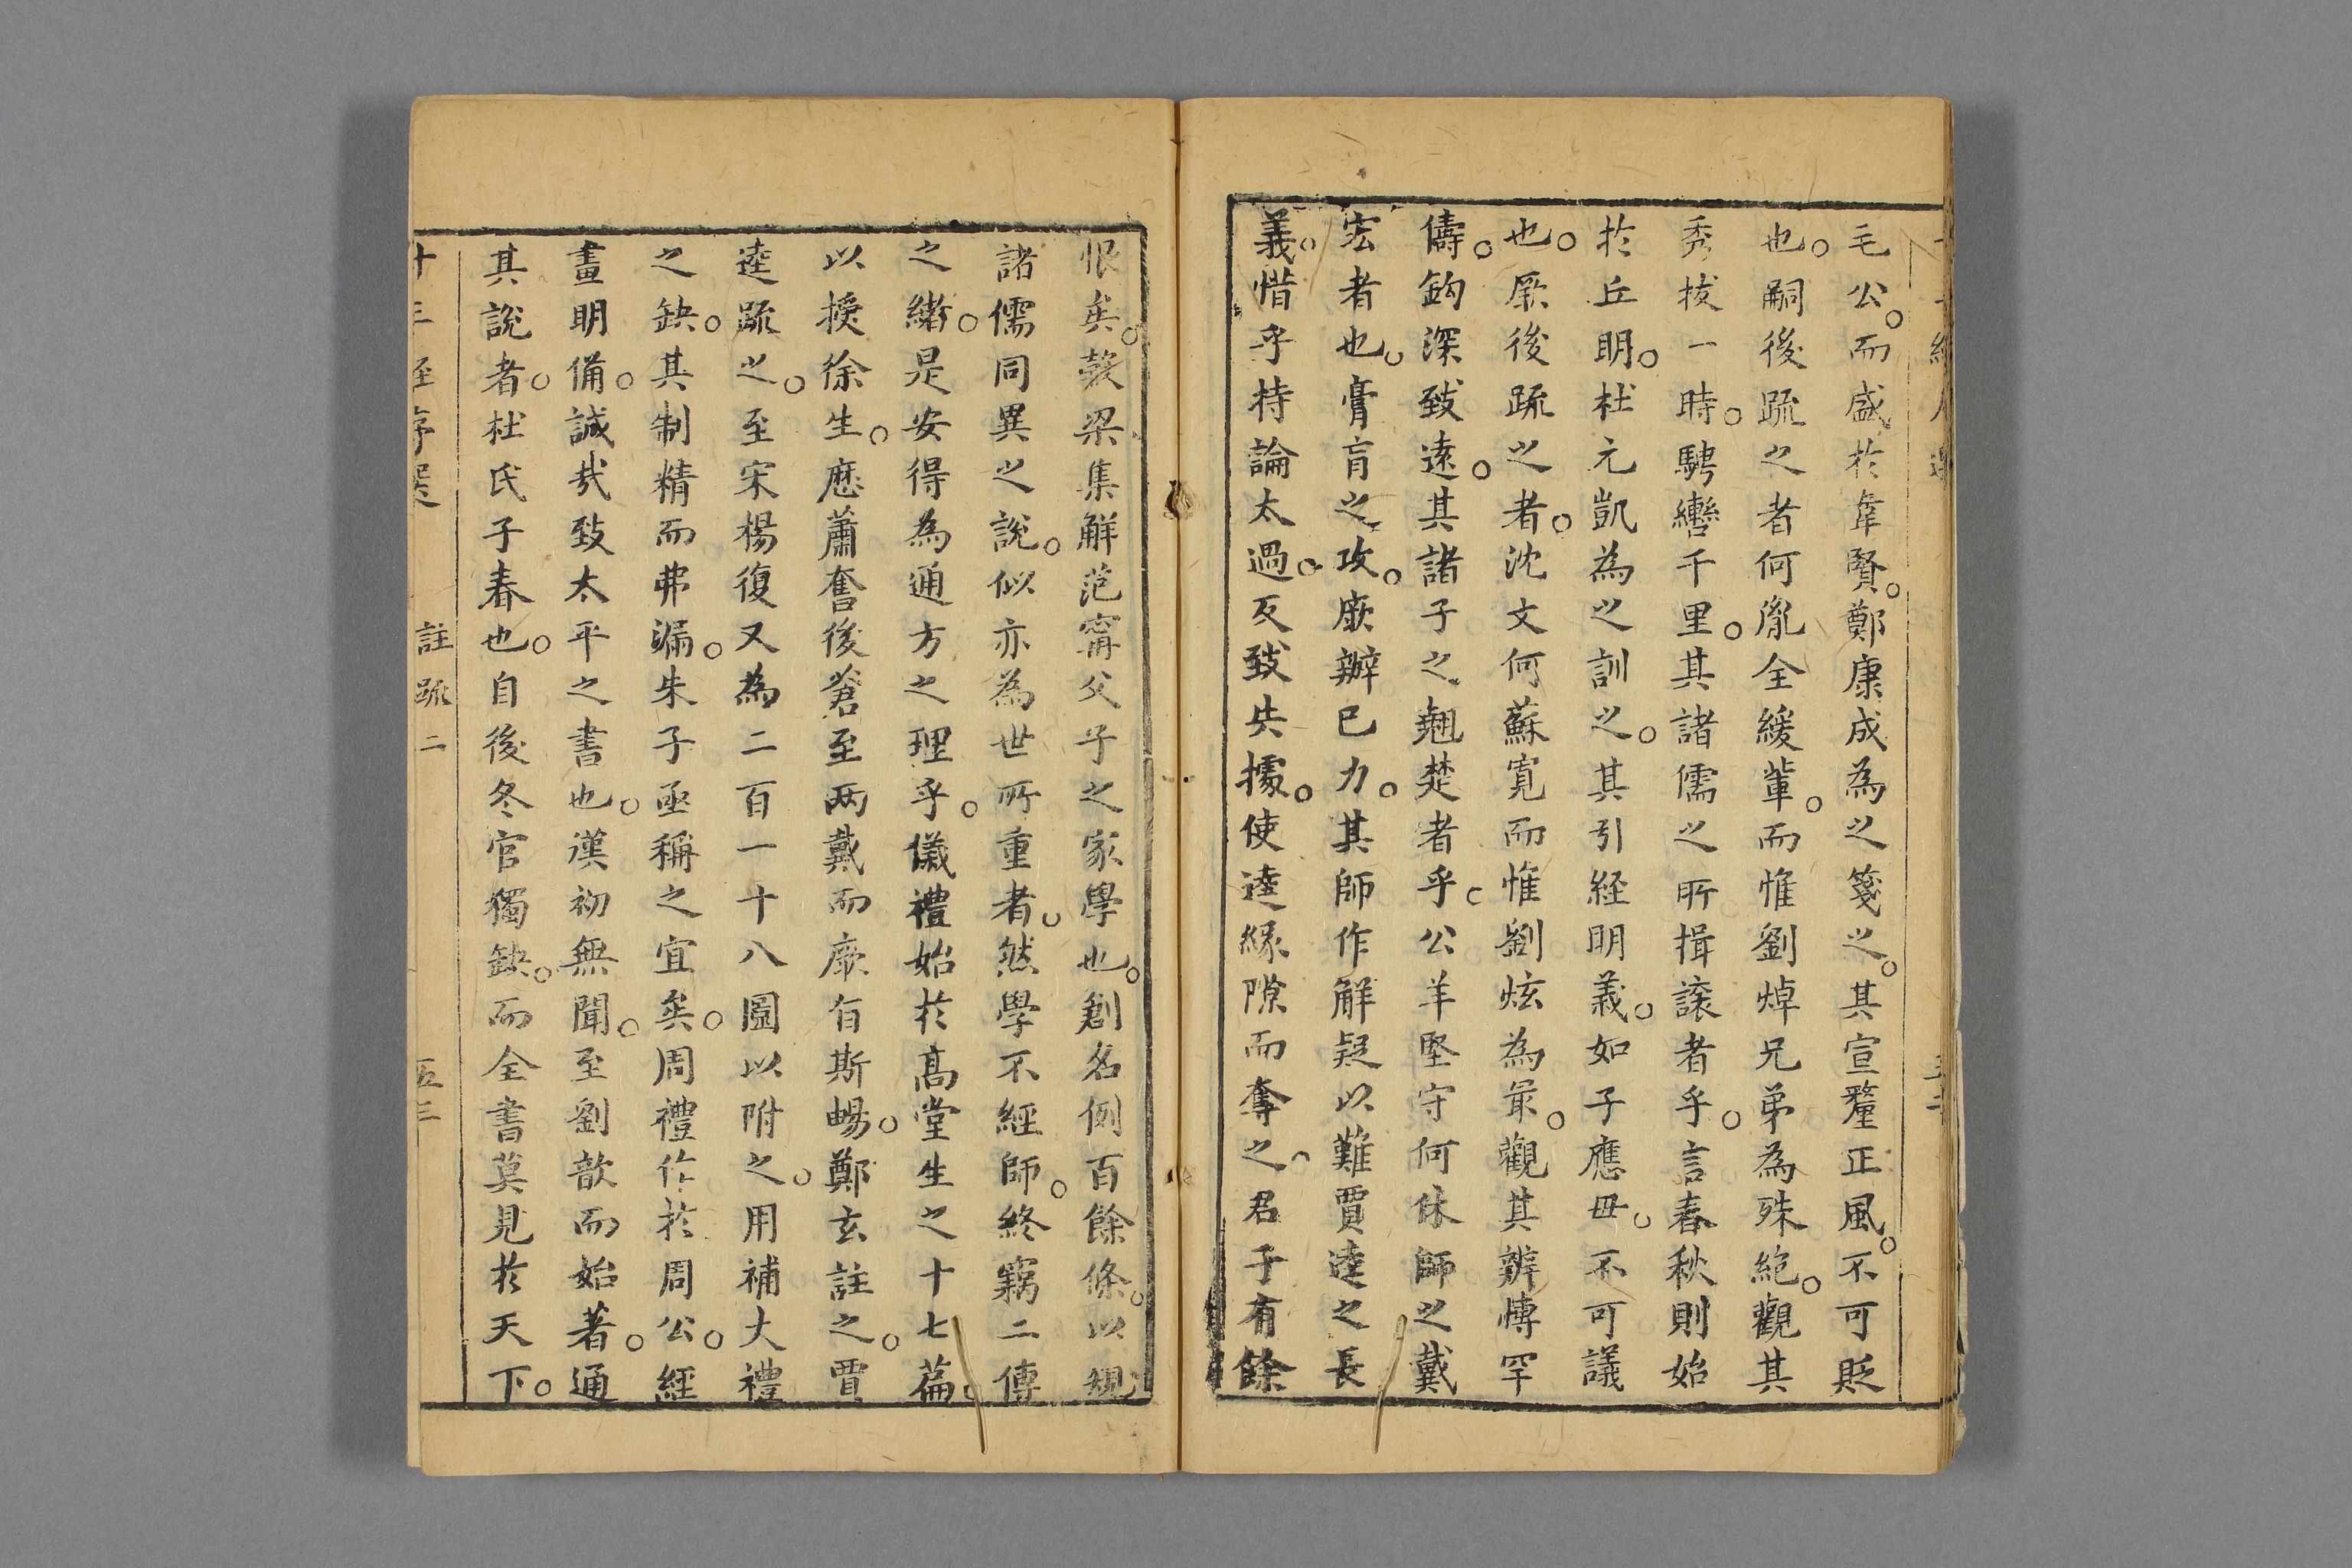 毛公而盛於韋賢鄭康成為之箋之其宣釐正風不可貶
也嗣後䟽之者何胤全緩軰而惟劉焯兄弟為殊絶觀其
秀拔一時騁轡千里其諸儒之所揖讓者乎言春秋則始
於丘明杜元凱為之訓之其引経明義如子應毋不可議
也厥後䟽之者沈文何蘇寬而惟劉炫為最觀其辨愽罕
儔鈎深致遠其諸子之翹楚者乎公羊堅守何休師之戴
宏者也膏肓之攻厥辦已力其師作解疑以難賈逵之長
義惜乎持論太過反致失據使逵縁隙而奪之君子有餘
恨矣榖梁集解范甯父子之家學也創名例百餘條以規
諸儒同異之說似亦為世所重者然學不經師終竊二傳
之緒是安得為通方之理乎儀禮始於髙堂生之十七萹
以授徐生歷蕭奮後蒼至兩戴而厥有斯暢鄭玄註之賈
逵䟽之至宋楊復又為二百一十八圖以附之用補大禮
之缺其制精而弗漏朱子亟稱之宜矣周禮作於周公經
畫明備誠哉致太平之書也漢初無聞至劉歆而始著通
其說者杜氏子春也自後冬官獨缺而全書莫見於天下
十三経序選 註䟽二 五三